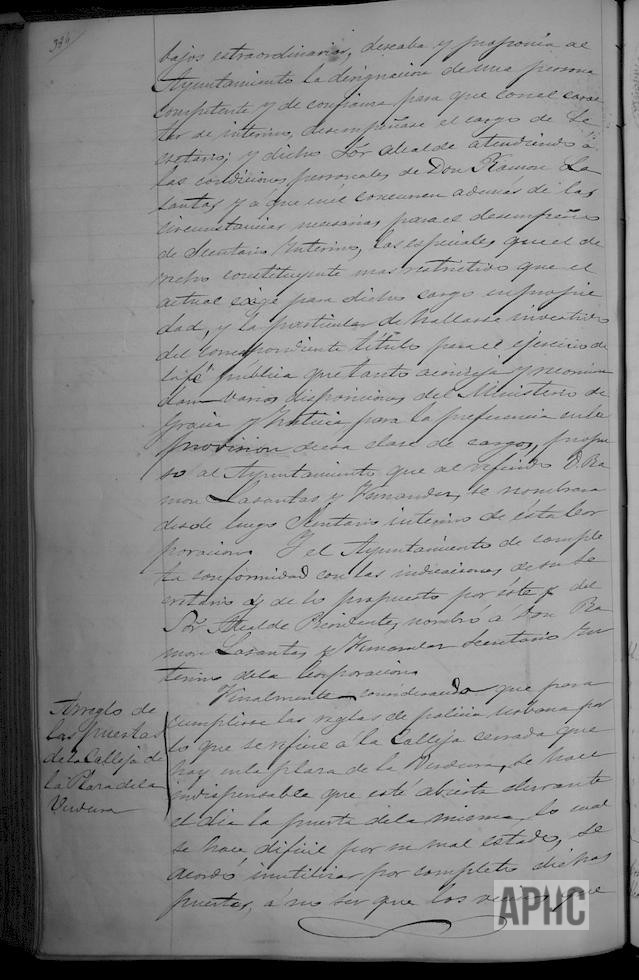 336
bajos extraordinarios, deseaba y proponía al
Ayuntamiento la designacion de una persona
competente y de confianza para que con el carac
ter de interino, desempeñase el cargo de Se
cretario; y dicho Sor Alcalde atendiendo á
las condiciones personales de Don Ramon La
santas y á que en él concurren ademas de las
circunstancias necesarias para el desempeño
de Secretario Interino, las especiales que el de
recho constituyente mas restrictivo que el
actual exige para dicho cargo en propie
dad, y la particular de hallarse investido
del correspondiente título para el ejercicio de
la fé pública que tanto aconseja y recomien
dan varias disposiciones del Ministerio de
Gracia y Justicia para la preferencia en la
provision de esa clase de cargos, propu
so al Ayuntamiento que al referido D. Ra
mon Lasantas y Fernandez, se nombrara
desde luego Secretario interino de esta Cor
poracion. Y el Ayuntamiento de comple
ta conformidad con las indicaciones de su Se
cretario y de lo propuesto por éste y del
Sor Alcalde Presidente, nombró á Don Ra
mon Lasantas y Fernandez Secretario In
terino de la Corporacion.
Finalmente considerando que para
cumplirse las reglas de policia urbana por
lo que se refiere á la Calleja cerrada que
hay en la plaza de la Verdura, se hace
indispensable que este abierta durante
el dia la puerta de la misma, lo cual
se hace dificil por su mal estado, se
acordó inutilizar por completo dichas
puertas, á no ser que los vecinos que
Arreglo de
las puertas
de la Calleja de
la Plaza de la
Verdura
APHC